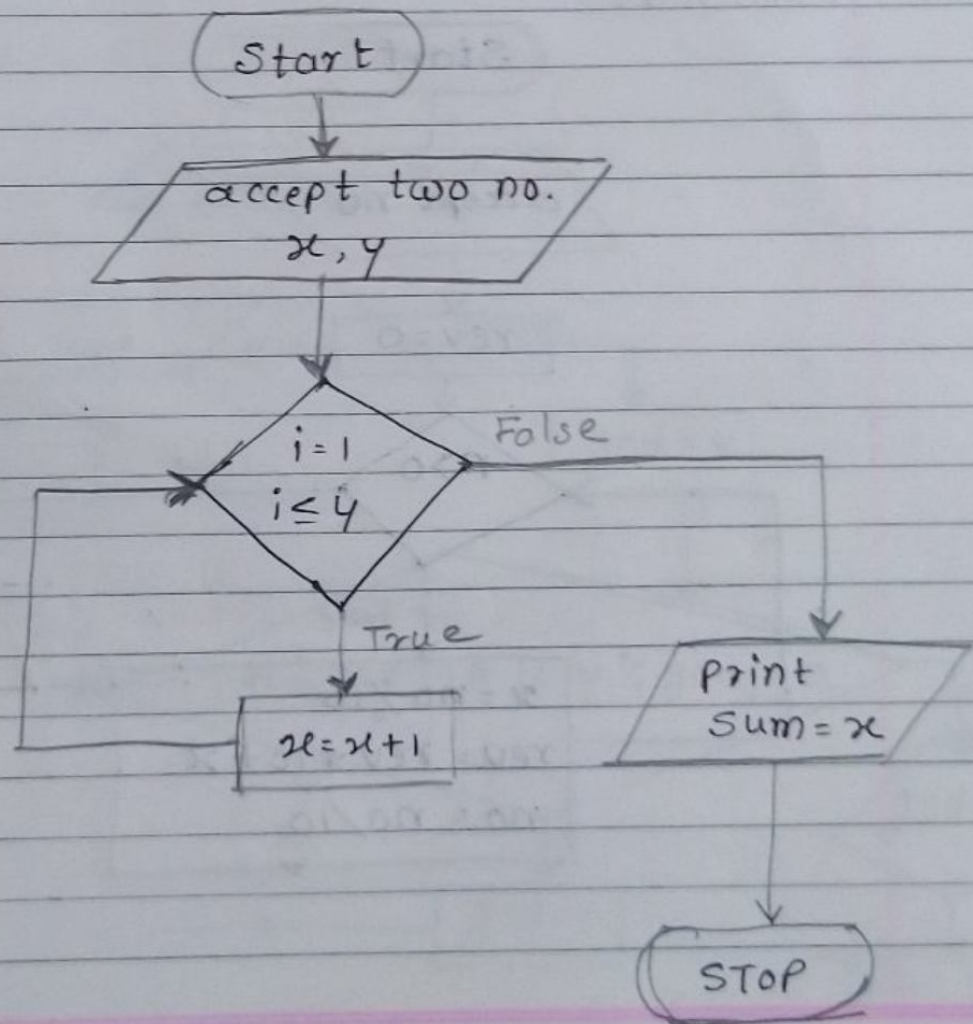 Start
accept two no.
x, y
i = 1
i ≤ y
False
True
x = x + 1
print
sum = x
STOP